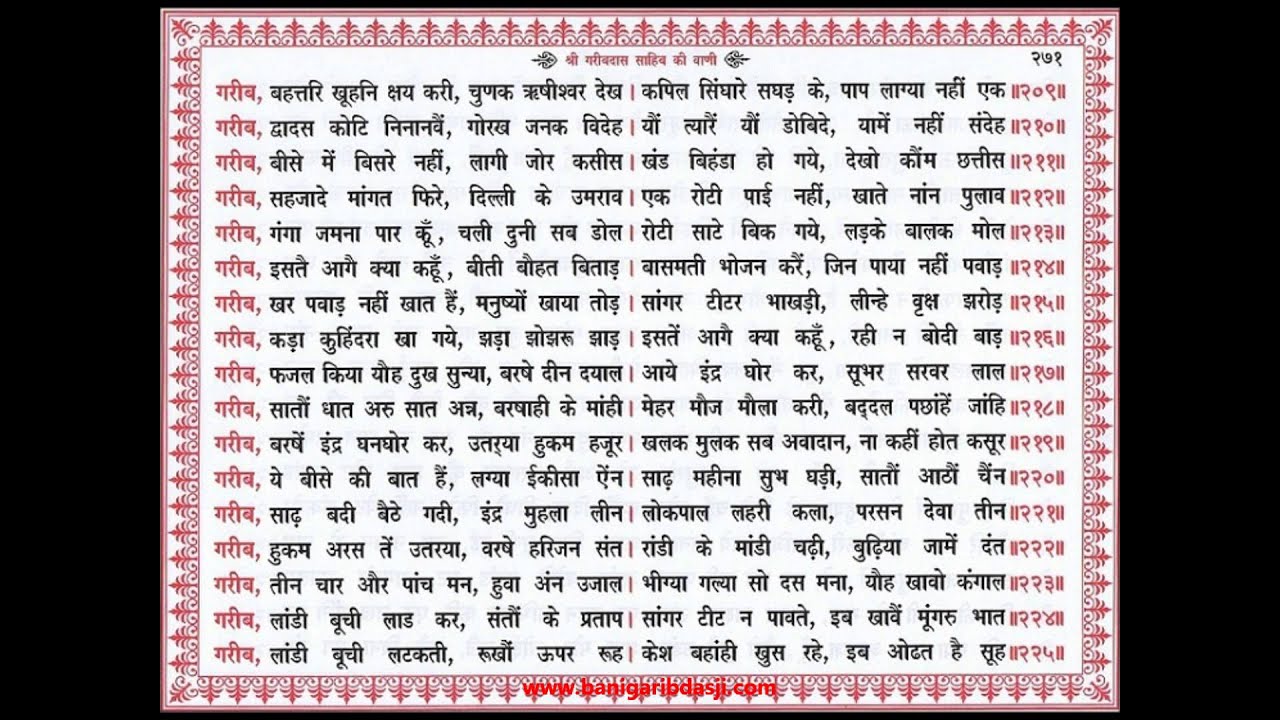 श्री गरीबदास साहिब की वाणी २७१
गरीब, बहत्तरि खूहनि क्षय करी, चुणक ऋषीश्वर देख। कपिल सिंघारे सघड़ के, पाप लाग्या नहीं एक॥२०९॥
गरीब, द्वादस कोटि निनानवैं, गोरख जनक विदेह। यौं त्यारैं यौं डोबिदे, यामें नहीं संदेह॥२१०॥
गरीब, बीसे में बिसरे नहीं, लागी जोर कसीस। खंड बिहंडा हो गये, देखो कौंम छत्तीस॥२११॥
गरीब, सहजादे मांगत फिरे, दिल्ली के उमराव। एक रोटी पाई नहीं, खाते नांन पुलाव॥२१२॥
गरीब, गंगा जमना पार कूँ, चली दुनी सब डोल। रोटी साटे बिक गये, लड़के बालक मोल॥२१३॥
गरीब, इसतै आगै क्या कहूँ, बीती बौहत बिताड़। बासमती भोजन करैं, जिन पाया नहीं पवाड़॥२१४॥
गरीब, खर पवाड़ नहीं खात हैं, मनुष्यों खाया तोड़। सांगर टीटर भाखड़ी, लीन्हे वृक्ष झरोड़॥२१५॥
गरीब, कड़ा कुहिंदरा खा गये, झड़ा झोझरू झाड़। इसतें आगै क्या कहूँ, रही न बोदी बाड़॥२१६॥
गरीब, फजल किया यौह दुख सुन्या, बरषे दीन दयाल। आये इंद्र घोर कर, सूभर सरवर लाल॥२१७॥
गरीब, सातौं धात अरु सात अन्न, बरषाही के मांही। मेहर मौज मौला करी, बद्दल पछांहें जांहि॥२१८॥
गरीब, बरषें इंद्र घनघोर कर, उतर्‍या हुकम हजूर। खलक मुलक सब अवादान, ना कहीं होत कसूर॥२१९॥
गरीब, ये बीसे की बात हैं, लग्या ईकीसा ऐंन। साढ़ महीना सुभ घड़ी, सातौं आठौं चैंन॥२२०॥
गरीब, साढ़ बदी बैठे गदी, इंद्र मुहला लीन। लोकपाल लहरी कला, परसन देवा तीन॥२२१॥
गरीब, हुकम अरस तें उतरया, वरषे हरिजन संत। रांडी के मांडी चढ़ी, बुढ़िया जामें दंत॥२२२॥
गरीब, तीन चार और पांच मन, हुवा अंन उजाल। भीग्या गल्या सो दस मना, यौह खावो कंगाल॥२२३॥
गरीब, लांडी बूची लाड कर, संतौं के प्रताप। सांगर टीट न पावते, इब खावैं मूंगरु भात॥२२४॥
गरीब, लांडी बूची लटकती, रूखौं ऊपर रूह। केश बहांही खुस रहे, इब ओढत है सूह॥२२५॥
www.banigaribdasji.com